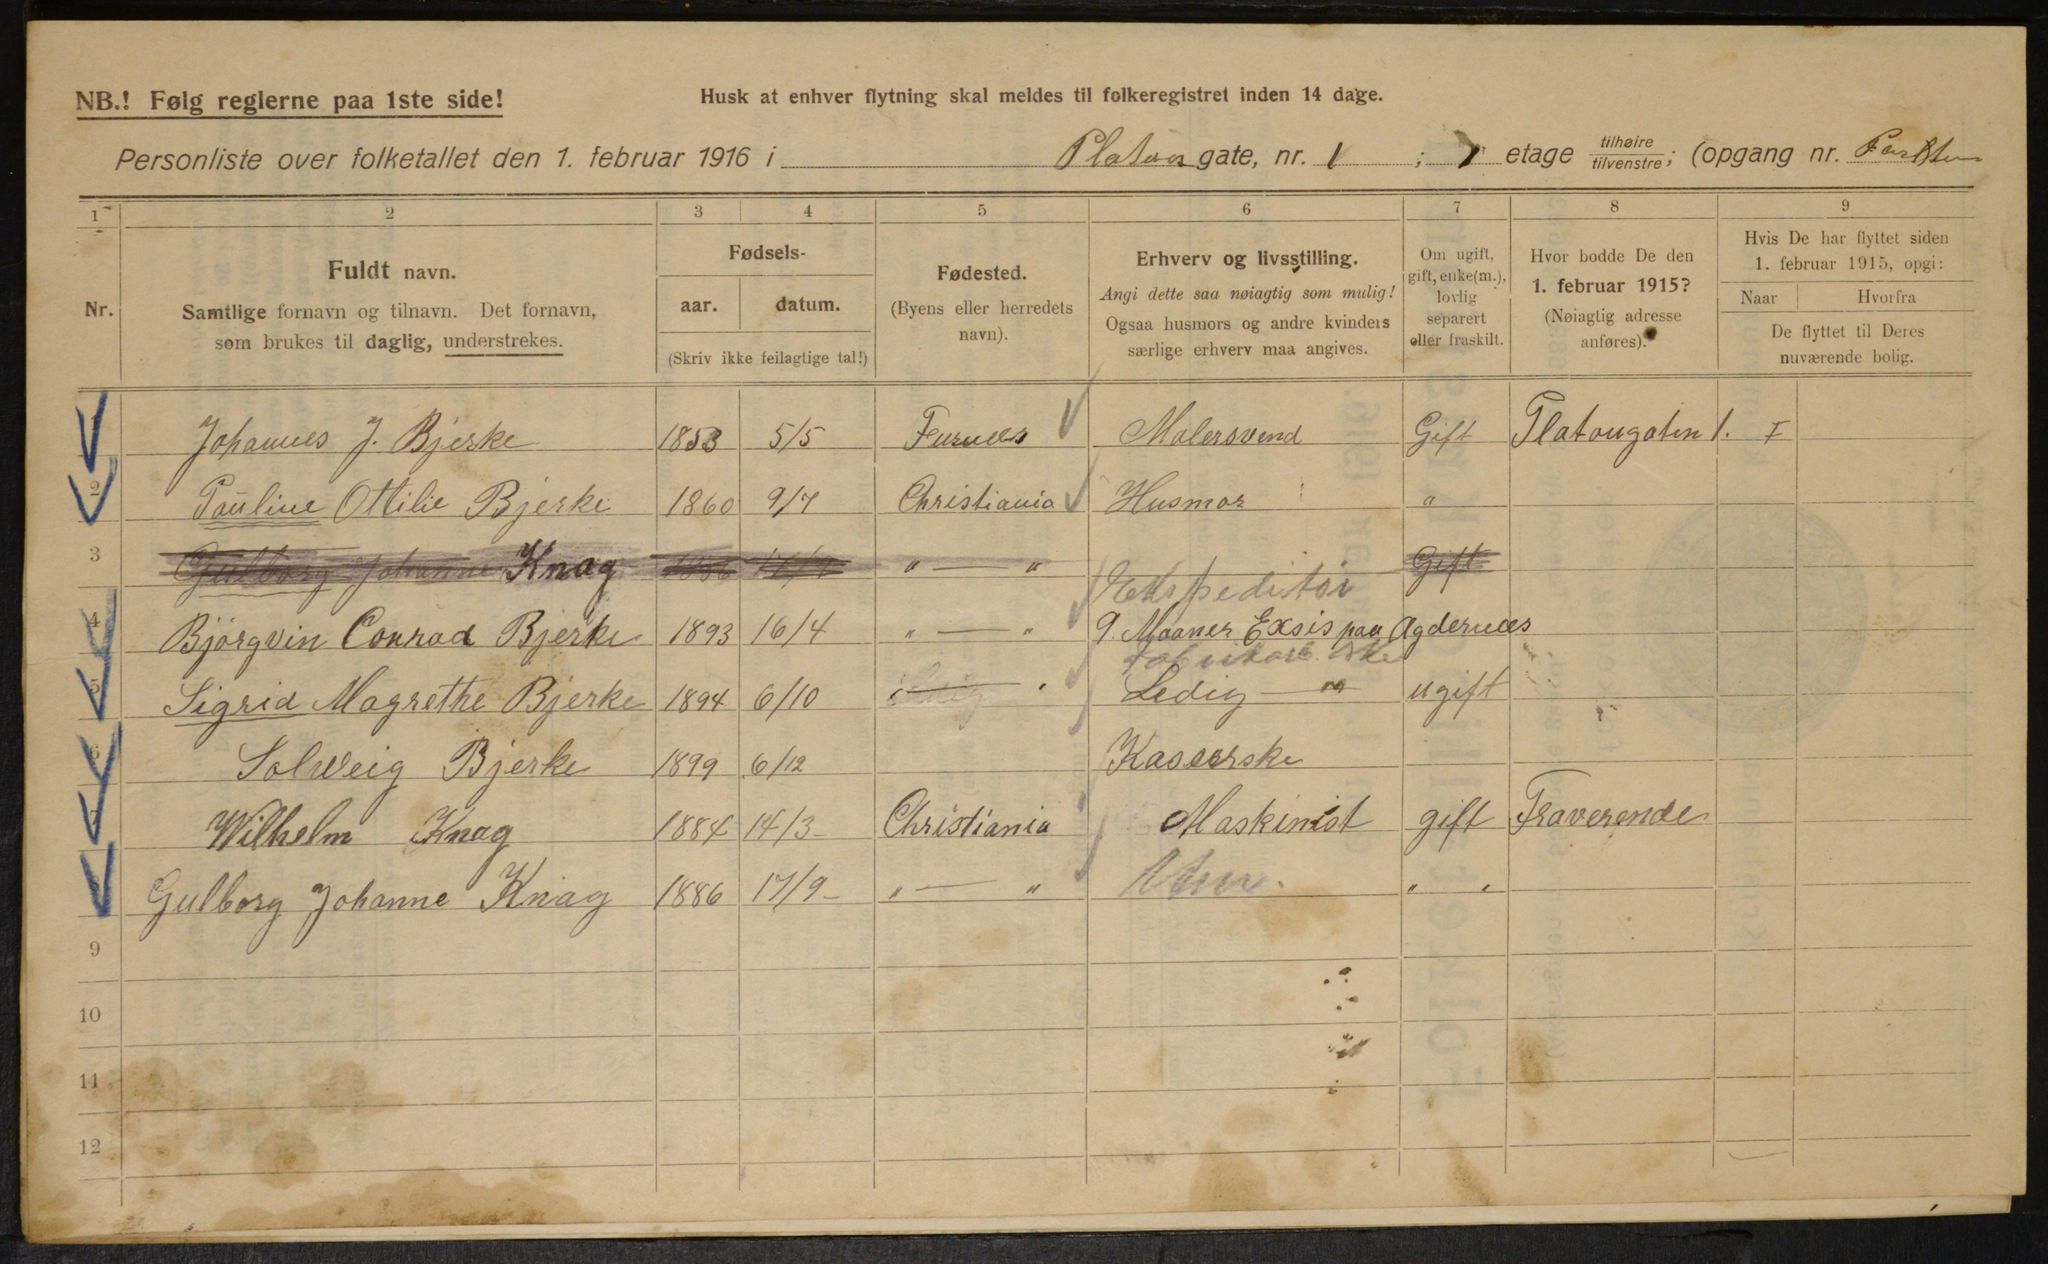 NB.! Følg reglerne paa 1ste side!
Husk at enhver flytning skal meldes til folkeregistret inden 14 dage.
Personliste over folketallet den 1. februar 1916 i Platous gate, nr. 1 ; 1 etage tilhøire/tilvenstre; (opgang nr.
1 2 3 4 5 6 7 8 9
Nr.
Fuldt navn.
Samtlige fornavn og tilnavn. Det fornavn,
som brukes til daglig, understrekes.
Fødsels-
aar. datum.
(Skriv ikke feilagtige tal!)
Fødested.
(Byens eller herredets
navn).
Erhverv og livsstilling.
Angi dette saa nøiagtig som mulig!
Ogsaa husmors og andre kvinders
særlige erhverv maa angives.
Om ugift,
gift, enke(m.),
lovlig
separert
eller fraskilt.
Hvor bodde De den
1. februar 1915?
(Nøiagtig adresse
anføres).
Hvis De har flyttet siden
1. februar 1915, opgi:
Naar Hvorfra
De flyttet til Deres
nuværende bolig.
1 Johannes J. Bjerke 1853 5/5 Furnes Malersvend Gift Platougaten 1. I
2 Pauline Ottilie Bjerke 1860 9/7 Christiania Husmor "
3 Gulborg Johanne Knag 1886 17/9 " — " Gift
Ekspeditør
4 Bjørgvin Conrad Bjerke 1893 16/4 " — " 9. Maaner Exsis paa Agdernes
5 Sigrid Magrethe Bjerke 1894 6/10 " — " Ledig — " ugift
6 Solveig Bjerke 1899 6/12 Kasserske
7 Wilhelm Knag 1884 14/3 Christiania Maskinist gift Fraverende
8 Gulborg Johanne Knag 1886 17/9 " — " " "
9
10
11
12